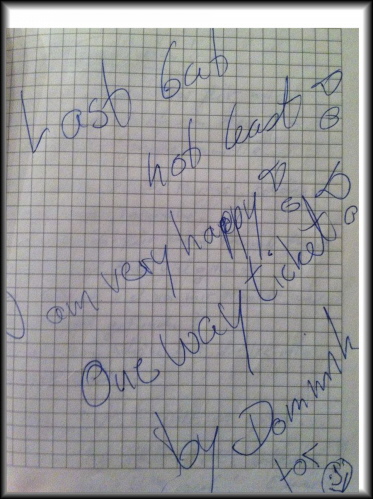 Last but
not least!
I am very happy!
One way ticket!
by Dominik
for